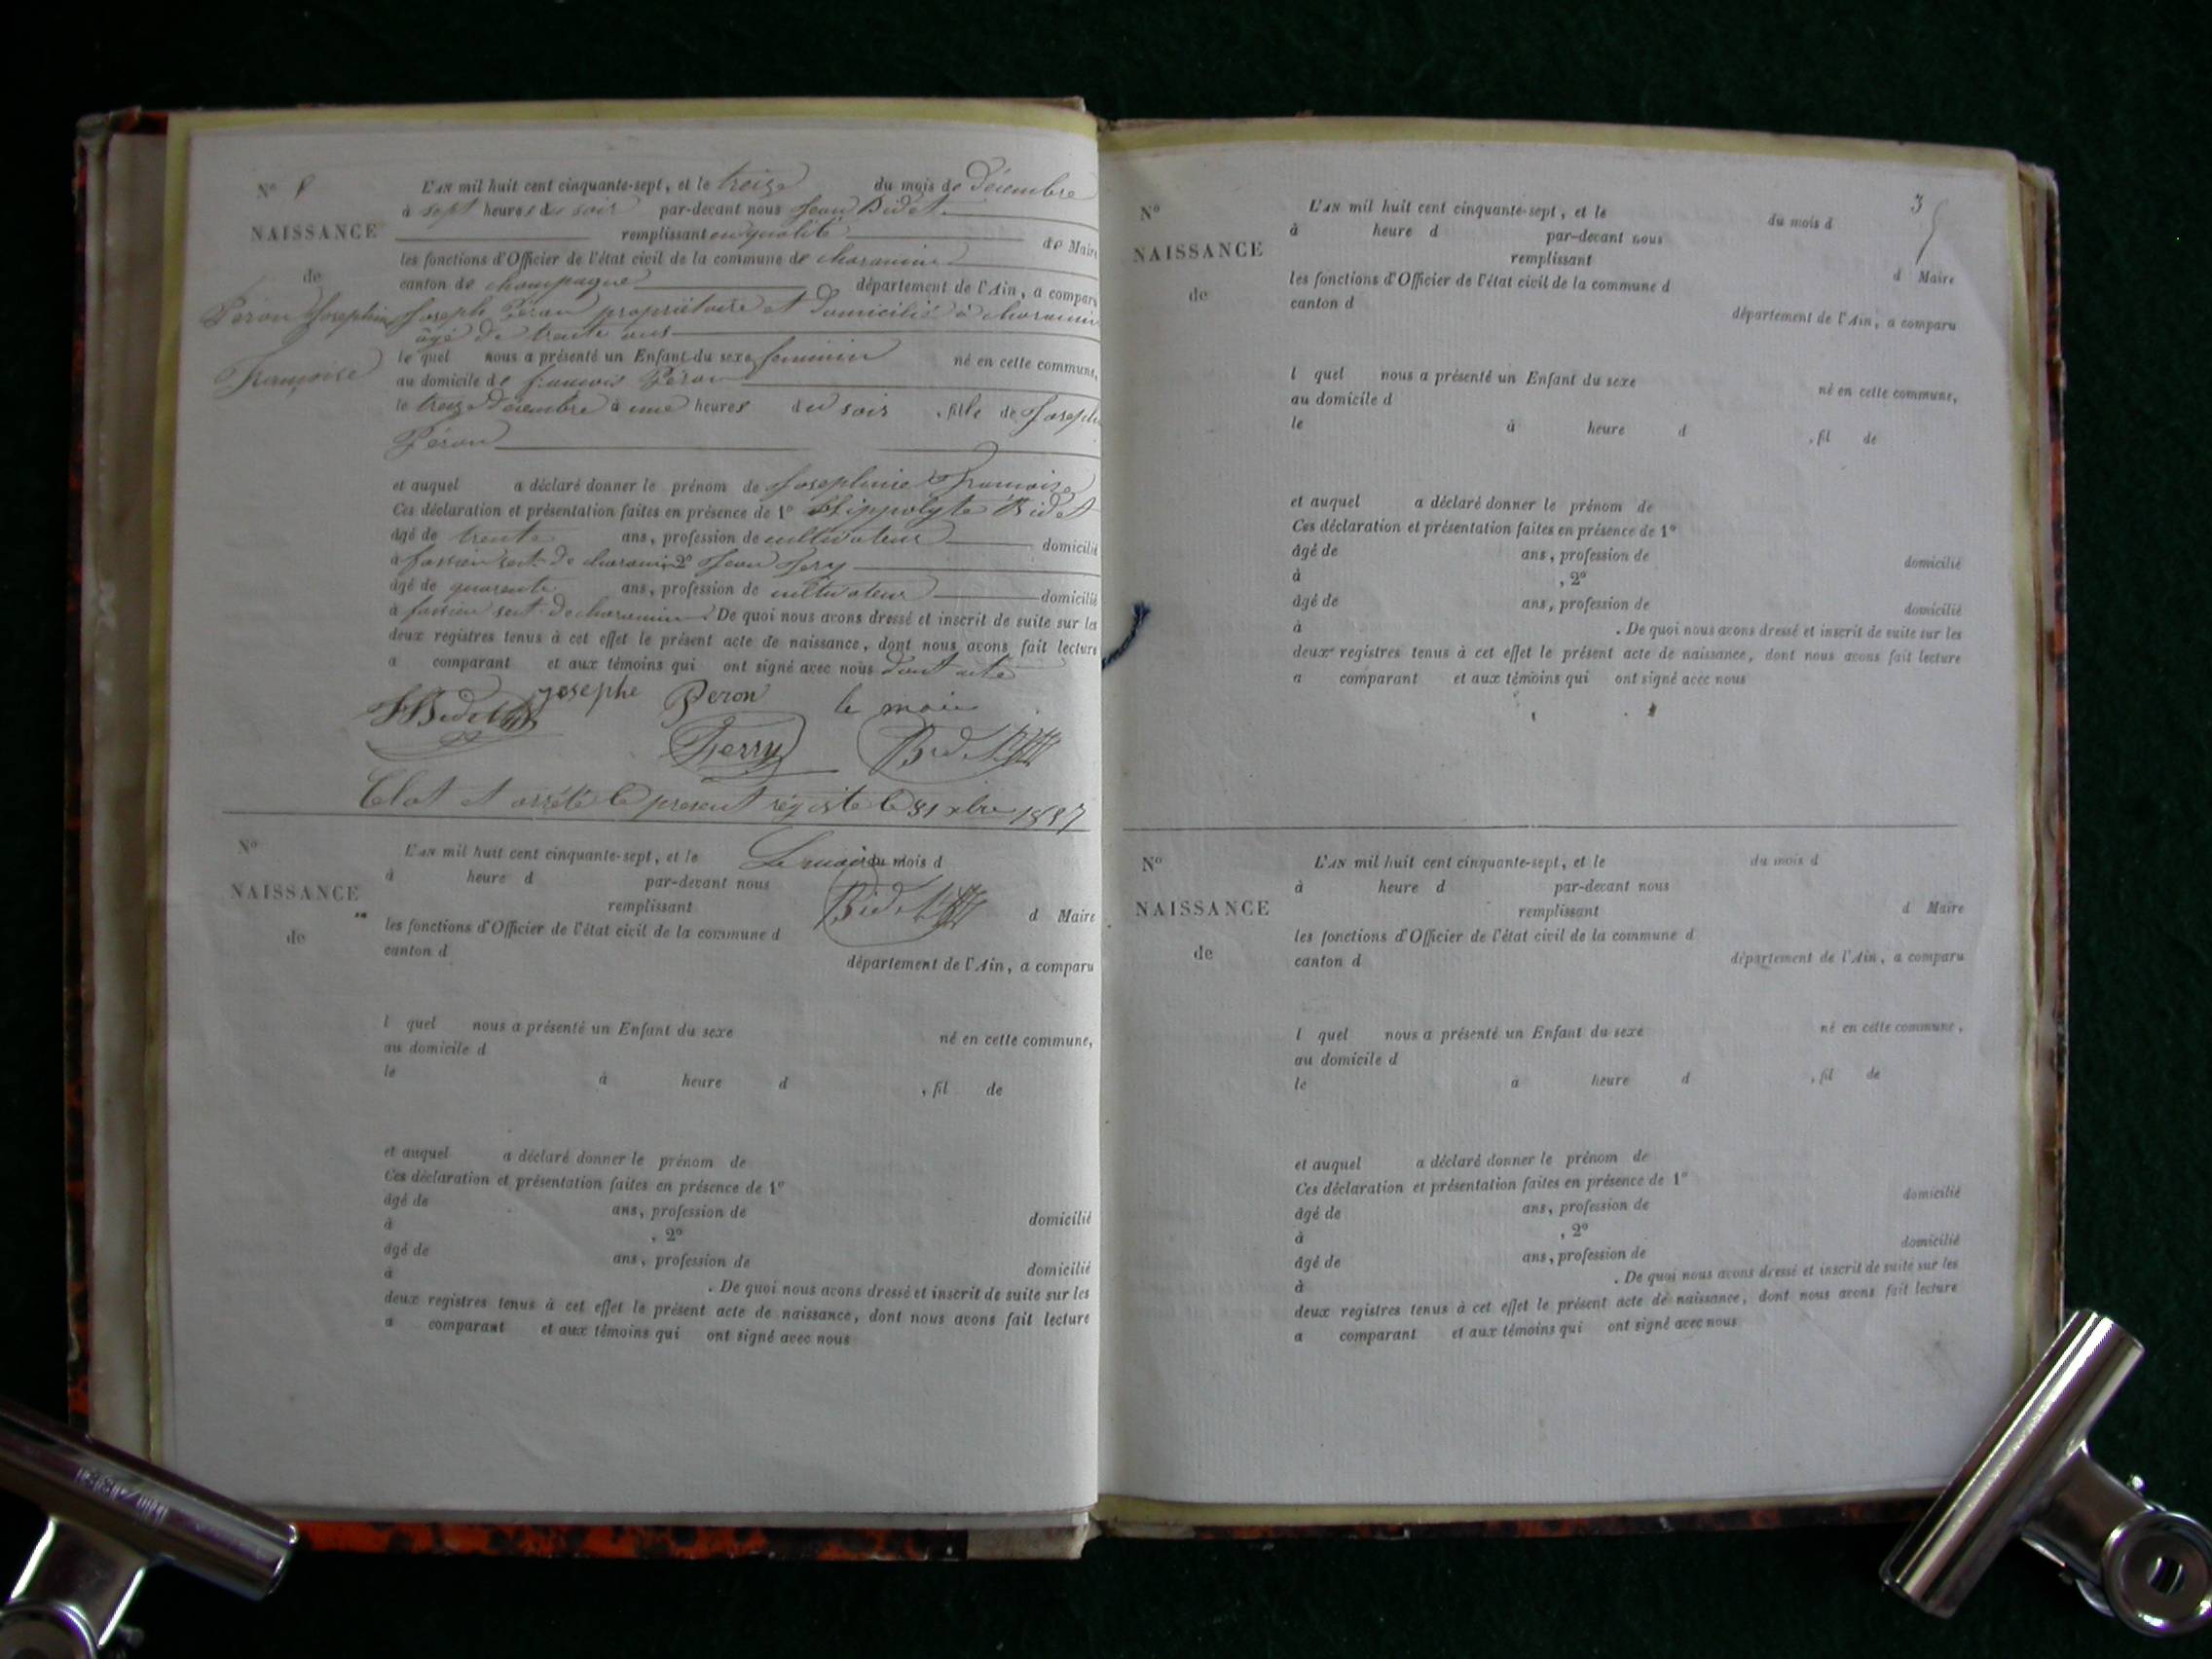 N° 8
NAISSANCE
de
Péron Josephine
Françoise
L'AN mil huit cent cinquante-sept, et le treize du mois de Décembre
à sept heures du soir par-devant nous Jean Bidet
remplissant en qualité de Maire
les fonctions d'Officier de l'état civil de la commune de
canton de champagne département de l'Ain, a comparu
Joseph Péron propriétaire et domicilié à
âgé de trente ans
lequel nous a présenté un Enfant du sexe feminin né en cette commune,
au domicile de francois Péron
le treize Décembre à une heures du soir , fille de Joseph
Péron
et auquel a déclaré donner le prénom de Josephine Francoise
Ces déclaration et présentation faites en présence de 1° Hippolyte Bidet
âgé de trente ans, profession de cultivateur domicilié
à 2° Jean
âgé de quarente ans, profession de cultivateur domicilié
à . De quoi nous avons dressé et inscrit de suite sur les
deux registres tenus à cet effet le présent acte de naissance, dont nous avons fait lecture
a comparant et aux témoins qui ont signé avec nous dont acte
HBidet josephe Peron le maire
Ferry Bidet
Clot et arrété le present régistre le 31 xbre 1857
Le maire
Bidet
N°
NAISSANCE
de
L'AN mil huit cent cinquante-sept, et le du mois d
à heure d par-devant nous
remplissant d Maire
les fonctions d'Officier de l'état civil de la commune d
canton d département de l'Ain, a comparu
l quel nous a présenté un Enfant du sexe né en cette commune,
au domicile d
le à heure d , fil de
et auquel a déclaré donner le prénom de
Ces déclaration et présentation faites en présence de 1°
âgé de ans, profession de domicilié
à , 2°
âgé de ans, profession de domicilié
à . De quoi nous avons dressé et inscrit de suite sur les
deux registres tenus à cet effet le présent acte de naissance, dont nous avons fait lecture
a comparant et aux témoins qui ont signé avec nous
3
N°
NAISSANCE
de
L'AN mil huit cent cinquante-sept, et le du mois d
à heure d par-devant nous
remplissant d Maire
les fonctions d'Officier de l'état civil de la commune d
canton d département de l'Ain, a comparu
l quel nous a présenté un Enfant du sexe né en cette commune,
au domicile d
le à heure d , fil de
et auquel a déclaré donner le prénom de
Ces déclaration et présentation faites en présence de 1°
âgé de ans, profession de domicilié
à , 2°
âgé de ans, profession de domicilié
à . De quoi nous avons dressé et inscrit de suite sur les
deux registres tenus à cet effet le présent acte de naissance, dont nous avons fait lecture
a comparant et aux témoins qui ont signé avec nous
N°
NAISSANCE
de
L'AN mil huit cent cinquante-sept, et le du mois d
à heure d par-devant nous
remplissant d Maire
les fonctions d'Officier de l'état civil de la commune d
canton d département de l'Ain, a comparu
l quel nous a présenté un Enfant du sexe né en cette commune,
au domicile d
le à heure d , fil de
et auquel a déclaré donner le prénom de
Ces déclaration et présentation faites en présence de 1°
âgé de ans, profession de domicilié
à , 2°
âgé de ans, profession de domicilié
à . De quoi nous avons dressé et inscrit de suite sur les
deux registres tenus à cet effet le présent acte de naissance, dont nous avons fait lecture
a comparant et aux témoins qui ont signé avec nous